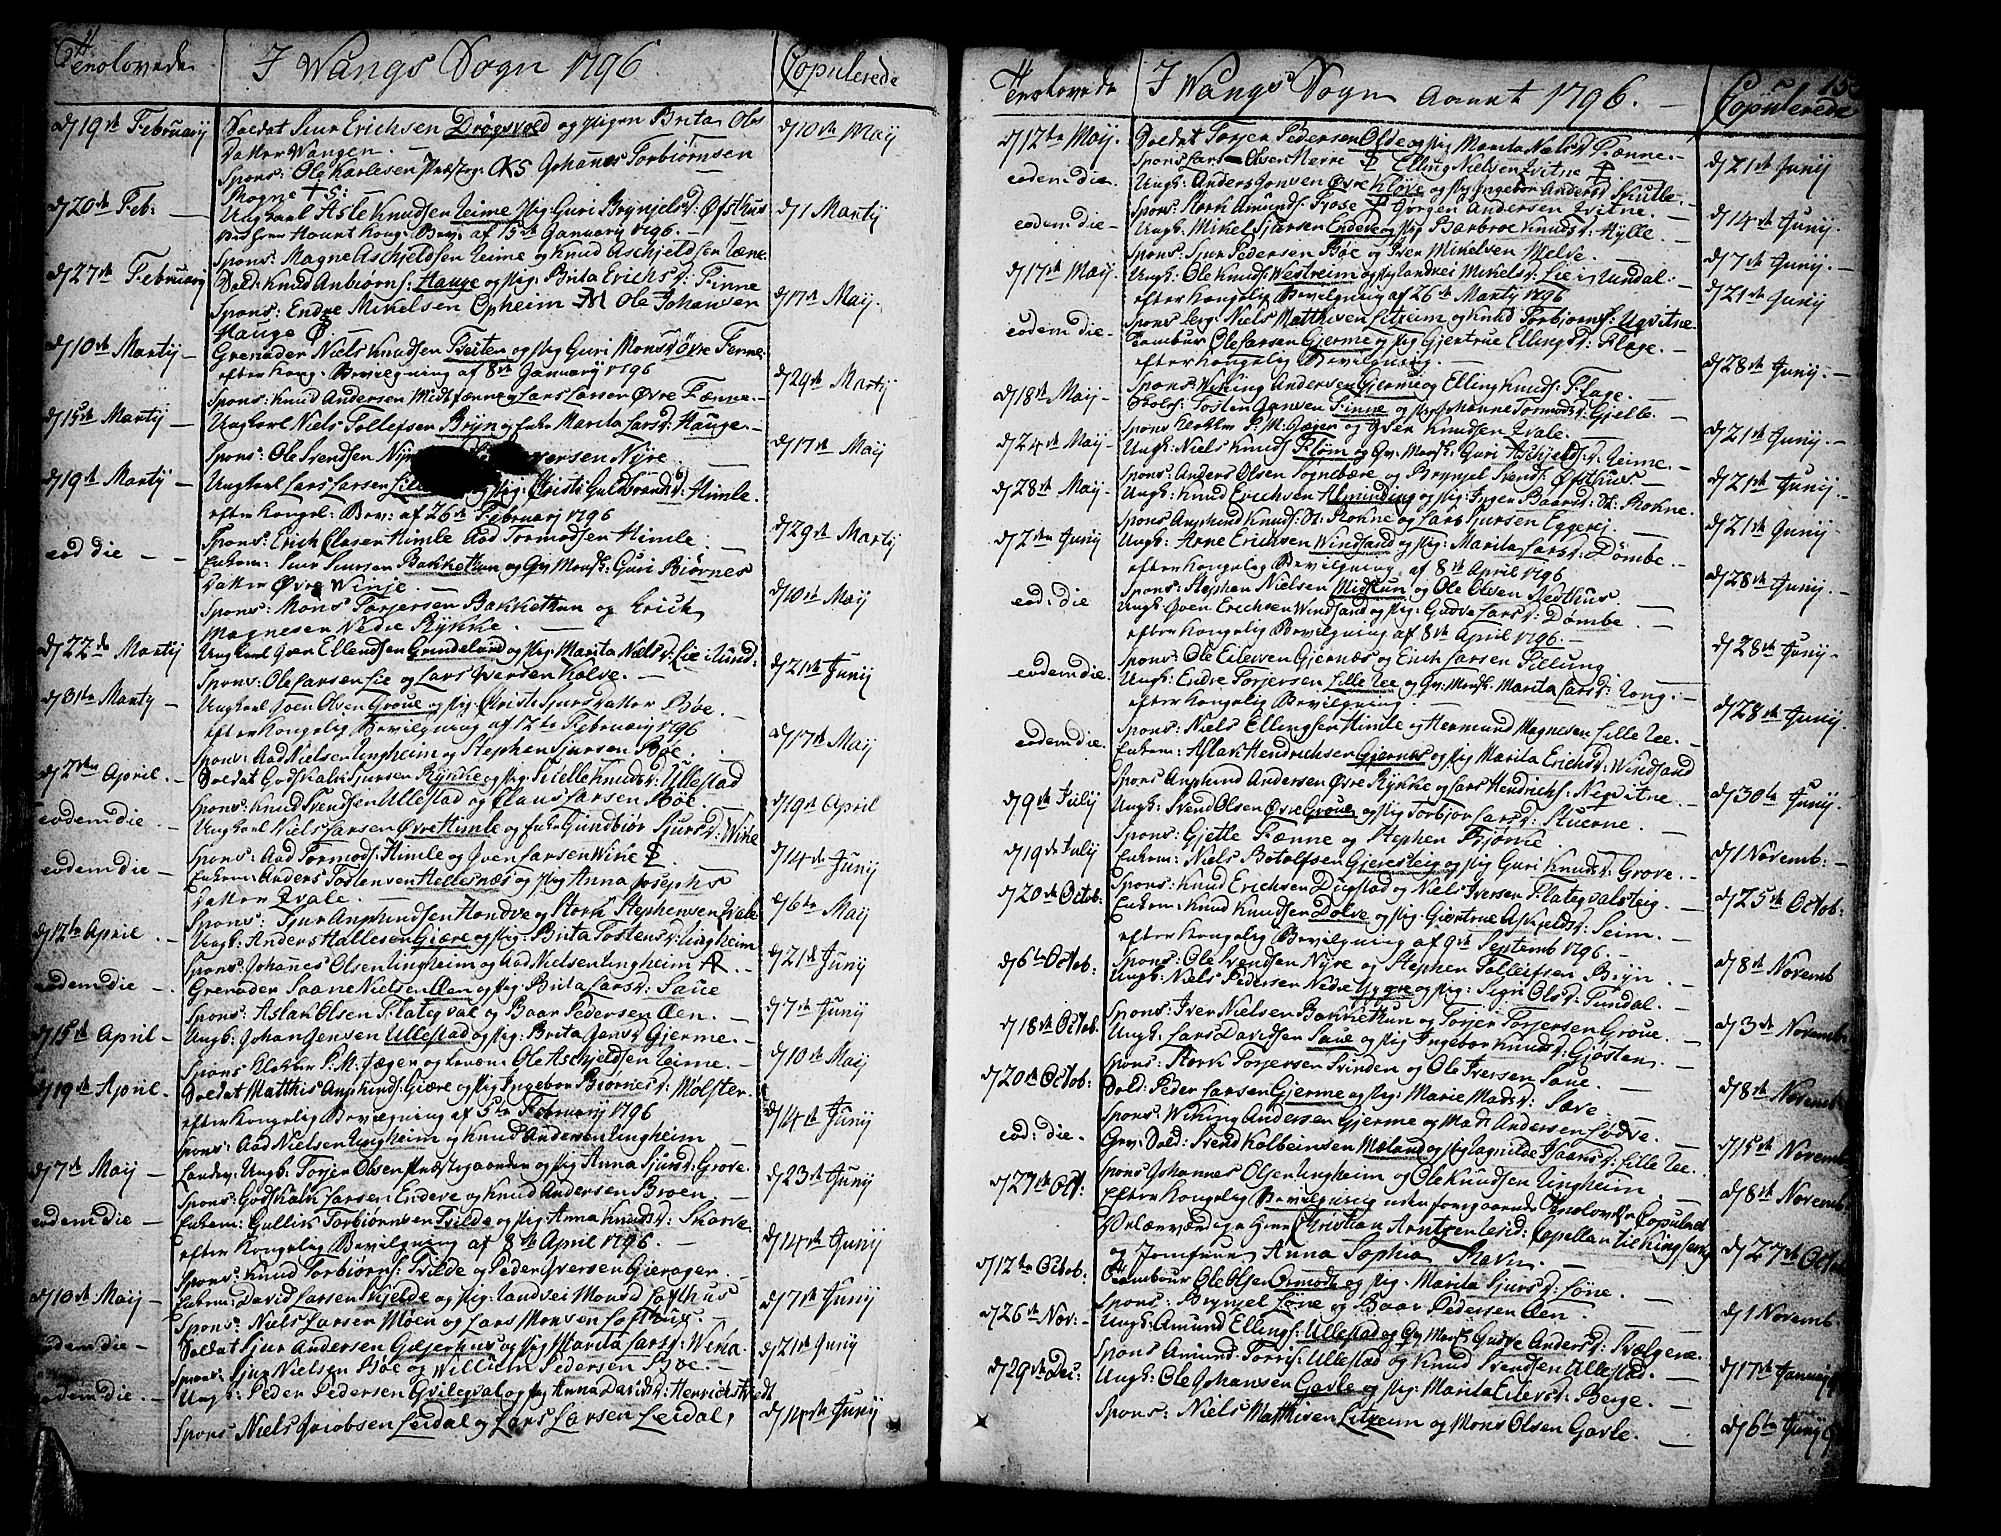 Trolovede
I Wangs Sogn 1796.
Copulerede
d 19de Februarij
Soldat Siur Erichsen Drøgsvold og pigen Brita Ols
d 10de Maij
Datter Wangen. —
Spons: Ole Karlesen Præsteg: OKS Johanes Torbiørnsen
Rogne + S:
d 20de Feb: —
Ungkarl Asle Knudsen Leime Pig: Guri Brynjels D: Øfsthus
d 1 Martij
Kong: Bev: af 15de January 1796. —
Spons: Magne Aschjeldsen Leime og Knud Aschjeldsen Læne
d 27de Februarij
Sold: Knud Anbiørns: Hauge og Pig: Brita Erichs D: Finne
d 17de Maij.
Spons: Endre Mikelsen Opheim Ole Johansen
Hauge
d 10de Martij —
Grenader Niels Knudsen Tveiten og Pig Guri Mons D: Øvre Fenne
efter Kong: Bevilgning af 8de January 1796
d 29de Martij
Spons: Knud Andersen Midtfænne og Lars Larsen Øvre Fænne. —
d 15de Martij —
Ungkarl Niels Tollefsen Bryn og Enke Marita Lars D: Hauge. —
d 17de Maij
Spons: Ole Svendsen Nyre Iversen Nyre. —
d 19de Martij
Ungkarl Lars Larsen og Pig: Christi Guldbrands D: Himle.
efter Kongel: Bev: af 26de Februarij 1796
d 29de Martij
Spons: Erich Olsen Himle Aad Tormodsen Himle. —
eod die —
Enkem: Siur Siursen Bakkethun og Guri Biørnes
Datter Øvre Winje. —
d 10de Maij
Spons: Mons Torjersen Bakkethun og Erich
Magnesen Nedre Rykke. —
d 22de Martij
Ungkarl Iver Ellendsen Grindeland og Pig: Marita Niels D: Lie i Und:
d 21de Junij
Spons: Ole Larsen Lie og Lars Iversen Kolve. —
d 31te Martij —
Ungkarl Iver Olsen Groue og Pig: Christi Siurs Datter Bøe. —
efter Kongelig Bevilgning af 12te Februarij 1796
d 17de Maij
Spons: Aad Nielsen Ungheim og Stephen Siursen Bøe. —
d 2den April. —
Soldat Godskalk Siursen Rykke og Pig: Knuds D: Ullestad
Spons: Knud Svendsen Ullestad og Claus Larsen Bøe. —
d 19de April
eodem die —
Ungkarl Niels Larsen Øvre Himle og Enke Gundbiør Siurs D: Wiche
Spons: Aad Tormods: Himle og Iver Larsen Wiche
d 14de Junij
eodem die —
Enkem: Anders Tostensen Hellesnæs og Pig Anna Josephs
Datter Qvale. —
d 6te Maij
Spons: Siur Amphindsen Hondve og Stork Stephensen Qvale
d 12te April —
Ungk: Anders Hallesen Giære og Pig: Brita Tostens D: Ungheim
d 21de Junij
Spons: Johanes Olsen Ungheim og Aad Nielsen Ungheim. —
eodem die —
Grenader Saane Nielsen Aen og Pig Brita Lars D: Saue
d 7de Junij
Spons: Aslak Olsen Flategval og Baar Pedersen Aen. —
d 15de April —
Ungk: Johan Jensen Ullestad og Pig: Brita Jens D: Gjerme. —
d 10de Maij
Spons Klokker P. M: Jæger og Ole Aschjeldsen Leime. —
d 19de April —
Soldat Matthis Amphinds: Giære og Pig Ingebor Biørnes D: Mølster
efter Kongelig Bevilgning af 5te Februarij 1796
d 14de Junij
Spons: Aad Nielsen Ungheim og Knud Andersen Ungheim —
d 7de Maij —
Landev: Ungk: Torjer Olsen Præstegaarden og Pig Anna Siurs D: Grove.
d 23de Junij
Spons: Godskalk Larsen Endeve og Knud Andersen Broen. —
eodem die —
Enkem: Gullik Torbiørnsen Tvilde og Pig: Anna Knuds D: Skorve
efter Kongelig Bevilgning af 8de April 1796. —
d 14de Junij
Spons: Knud Torbiørns: Tvilde og Peder Iversen Gjerager. —
d 10de Maij —
Enkem: David Larsen og Pig: Mons D: Lofthus
d 7de Junij
Spons: Niels Larsen Møen og Lars Monsen Lofthus. —
eodem die —
Soldat Siur Andersen og Pig Marita Lars D: Wiha.
d 21de Junij
Spons: Siur Nielsen Bøe og Willum Pedersen Bøe. —
eodem die. —
Ungk: Peder Pedersen Gvilegval og Pig Anna Davids D: Henrichstvedt
d 14de Junij
Spons: Niels Jacobsen Leidal og Lars Larsen Leidal,
Trolovede
I Wangs Sogn Aanet 1796. —
Copulerede
d 12te Maij.
Soldat Torjer Pedersen Olde og Pig Marita Niels D: Fænne. —
d 21de Junij
Spons Lars Olsen Herre Elling Nielsen Qvitne
eodem die.
Ungk: Anders Jonsen Øvre Kløve og Pig Ingebor Anders D: Skulle.
d 14de Junij
Spons: Stork Amunds: Trose Jørgen Andersen Qvitne.
eodem die —
Ungk: Mikel Sjursen Endeve og Pig Barbroe Knuds D: Hylle.
d 7de Junij. —
Spons: Sjur Pedersen Bøe og Iver Mikelsen Melve. —
d 17de Maij
Ungk: Ole Knuds: Westreim og Pig Mikels D: Lie i Undal:
efter Kongelig Bevilgning af 26de Martij 1796
d 21de Junij
Spons Niels Matthisen Litreim og Knud Torbjørns: Ugvitne
eodem die —
Tambur Ole Larsen Gjerme og Pig Gjertrue Ellings D: Flage. —
efter Kongelig Bevilgning. —
d 28de Junij
Spons: Wiking Andersen Gjerme og Elling Knuds: Flage.
d 18de Maij —
Tosten Jansen Finne og Pig Johanne Tormods D: Gjelle. —
Spons Klokker P. M. Jæger og Iver Knudsen Qvale. —
d 21de Junij. —
d 24de Maij —
Ungk: Niels Knuds: Fløm og Gv: Guri Aschjelds D: Leime. —
Spons: Anders Olsen Sognebære og Brynjel Svends: Øfsthus —
d 21de Junij. —
d 28de Maij —
Ungk: Knud Erichsen Almunding og Pig: Inger Baars D: St: Rokne.
Spons Amphind Knuds: St: Rokne og Lars Sjursen Eggerej. —
d 21de Junij
d 2den Junij
Ungk: Arne Erichsen Windsand og Pig: Marita Lars D: Dømbe —
efter Kongelig Bevilgning af 8de April 1796
d 28de Junij
Spons: Stephen Nielsen Midthun og Ole Olsen Rødthus
eod: die
Ungk Iver Erichsen Windsand og Pig: Gudve Lars D: Dømbe —
efter Kongelig Bevilgning af 8de April 1796. —
d 28de Junij —
Spons: Ole Eilevsen Gjernæs og Erich Larsen Fillung
eodem die.
Ungk: Endre Torjersen Lille Lee og Gv: Marita Lars D: Long. —
efter Kongelig Bevilgning. —
d 28de Junij
Spons: Niels Ellingsen Himle og Hermund Magnesen Lille Lee. —
eodem die.
Enkem: Aslak Hendrichsen Gjernes og Pig Marita Erichs D: Windsand
Spons Amphind Andersen Øvre Rykke og Lars Hendrichs: Negvitne
d 30te Junij.
d 9de Julij
Ungk: Svend Olsen Øvre Groue og Pig Torbjør Lars D: Stuerne. —
Spons: Gjetle Fænne og Stephen Bjørke
d 1 Novemb: —
d 19de Julij
Enkem: Niels Botolfsen Gjeresteig og Pig Guri Knuds D: Grove. —
Spons: Knud Erichsen Dugstad og Niels Iversen Flategvalsteig —
d 25de Octob:
d 20de Octob:
Enkem: Knud Knudsen Dolve og Pig: Giertrue Askjelds D: Seim. —
efter Kongelig Bevilgning af 9de Septemb 1796. —
Spons: Ole Svendsen Nyre og Stephen Tollefsen Bryn
d 8de Novemb
d 6te Octob:
Ungk: Niels Pedersen Nedre Ygre og Pig: Sign Ols D: Tundal. —
Spons: Iver Nielsen Bakkethun og Torjer Torjersen Groue.
d 3de Novemb:
d 18de Octob.
Ungk: Lars Davidsen Saue og Pig Ingebor Knuds D: Gjøsten
Spons: Stork Torjersen Svinden og Ole Iversen Saue. —
d 20de Octob:
Sold: Peder Larsen Gjerme og Pig: Marie Mads D: Save. —
Spons: Wiking Andersen Gjerme og Mads Andersen Lødve. —
d 8de Novemb
eod: die.
Gev: Sold: Svend Kolbeinsen Møland og Pig Ragnilde Haans D: Lille Lee.
Spons Johannes Olsen Ungheim og Ole Knudsen Ungheim —
d 15de Novemb
d 27de Oct:
Efter Kongelig Bevilgning uden foregaaende Trolovelse Copuleret
Velærværdige Herr Christian Arntzen Capellan til Kingservig
og Jomfrue Anna Sophia Ravn. —
d 8de Novemb
d 27de Octob
d 12te Octob:
Tambour Ole Olsen Ormodt og Pig: Marita Sjurs D: Løne. —
Spons: Brynjel Løne og Baar Pedersen Aen. —
d 1 Novemb.
d 26de Nov: —
Ungk: Amund Ellings: Ullestad og Gv Gudve Anders D: Qvælgene.
Spons Amund Torris: Ullestad og Knud Svendsen Ullestad. —
d 17de January
d 29de Dec:
Ungk: Ole Johansen Gavle og Pig: Marita Eilevs D: Berge. —
Spons: Niels Matthisen Litreim og Mons Olsen Gavle. —
d 6te Junij